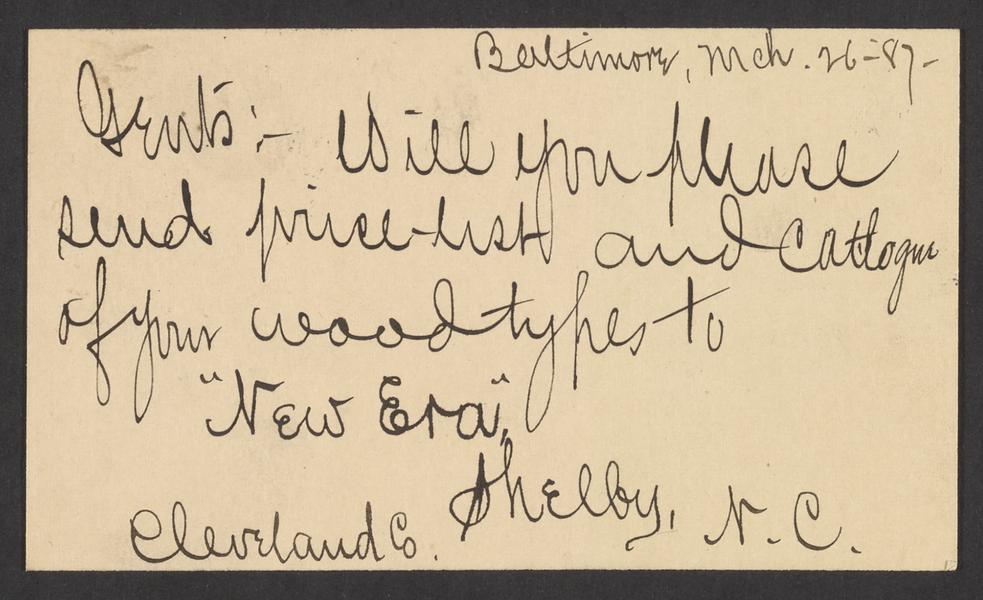 Baltimore, Mch. 26-87-
Gents:- Will you please
send price-list and Cattlogue
of your wood types to
"New Era",
Shelby, N.C.
Cleveland Co.